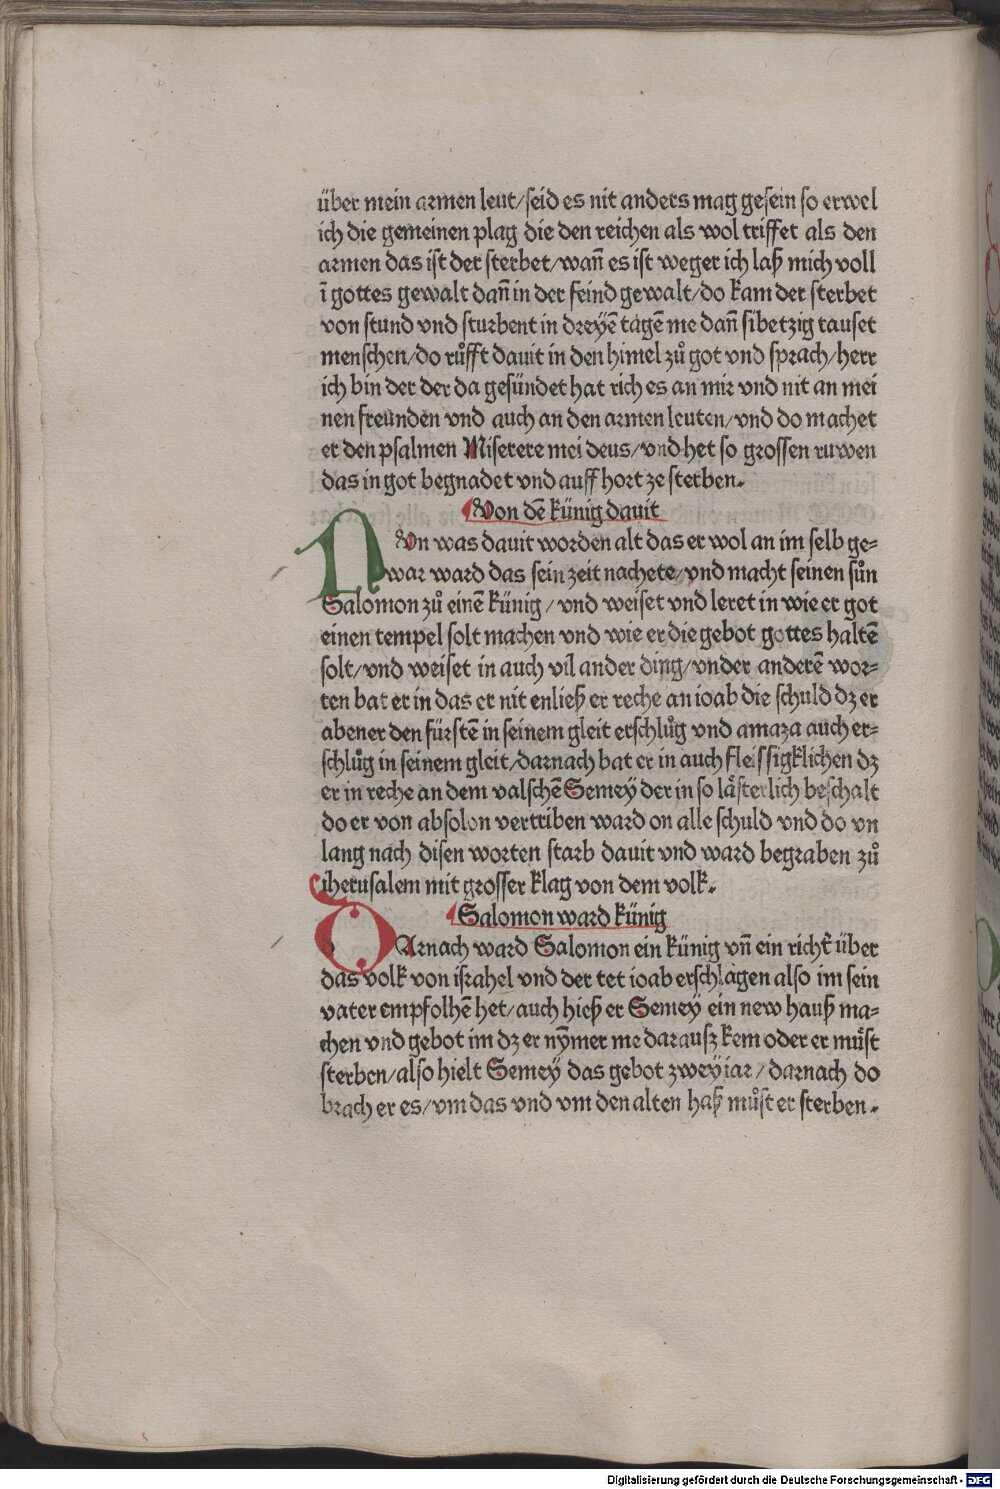 über mein armen leut/seid es nit anders mag gesein so erwel
ich die gemeinen plag die den reichen als wol triffet als den
armen das ist der sterbet/wañ es ist weger ich laß mich voll
ĩ gottes gewalt dañ in der feind gewalt/do kam der sterbet
von stund vnd sturbent in dreyẽ tagẽ me dañ sibetzig tauset
menschen/do růfft dauit in den himel zů got vnd sprach/herr
ich bin der der da gesündet hat rich es an mir vnd nit an mei
nen freünden vnd auch an den armen leuten/vnd do machet
er den psalmen Miserere mei deus/vnd het so grossen ruwen
das in got begnadet vnd auff hort ze sterben.
Von dẽ künig dauit
NVn was dauit worden alt das er wol an im selb ge=
war ward das sein zeit nachete/vnd macht seinen sůn
Salomon zů einẽ künig/vnd weiset vnd leret in wie er got
einen tempel solt machen vnd wie er die gebot gottes haltẽ
solt/vnd weiset in auch vil ander ding/vnder anderẽ wor=
ten bat er in das er nit enließ er reche an ioab die schuld dz er
abener den fürstẽ in seinem gleit erschlůg vnd amaza auch er=
schlůg in seinem gleit/darnach bat er in auch fleissigklichen dz
er in reche an dem valschẽ Semey der in so lästerlich beschalt
do er von absolon vertriben ward on alle schuld vnd do vn
lang nach disen worten starb dauit vnd ward begraben zů
iherusalem mit grosser klag von dem volk.
Salomon ward künig
DArnach ward Salomon ein künig vñ ein richt̃ über
das volk von israhel vnd der tet ioab erschlagen also im sein
vater empfolhẽ het/auch hieß er Semey ein new hauß ma=
chen vnd gebot im dz er nỹmer me darausz kem oder er můst
sterben/also hielt Semey das gebot zwey iar/darnach do
brach er es/vm das vnd vm den alten haß můst er sterben.
Digitalisierung gefördert durch die Deutsche Forschungsgemeinschaft - DFG